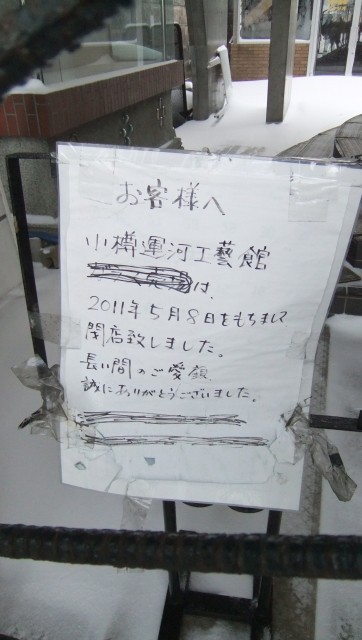 お客様へ
小樽運河工藝館
は、
2011年5月8日をもちまして
閉店致しました。
長い間のご愛顧
誠にありがとうございました。